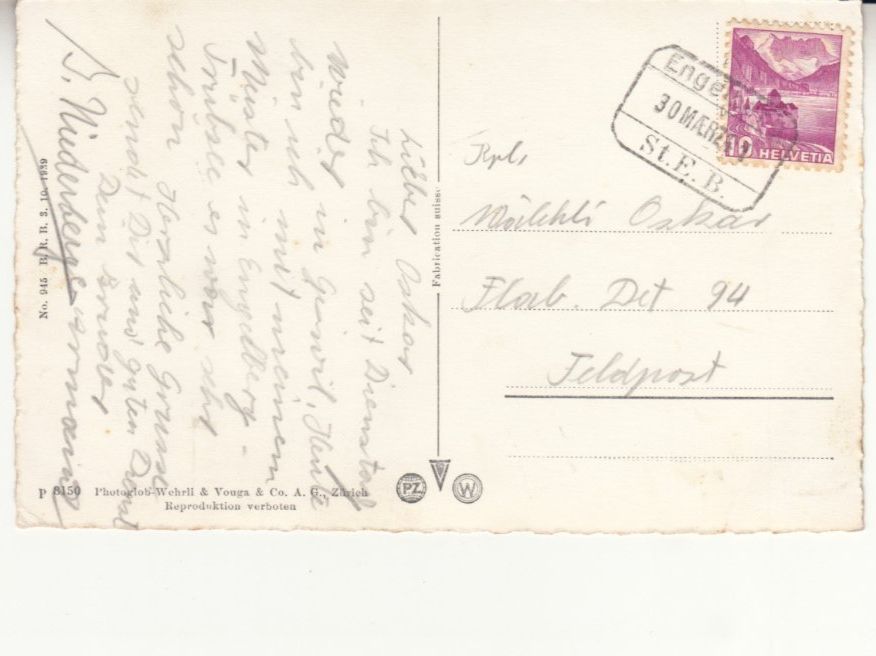 Lieber Oskar
Ich bin seit Dienstag
wieder in Giswil, Heute
bin ich mit meinem
Meister in Engelberg -
Trübsee es war sehr
schön Herzliche Grüsse
sendet Dir und guten Dienst
Dein Bruder
Hermann
B. Niederberger
No. 945 B. R. B. 3. 10. 1939
P 8150 Photoglob-Wehrli & Vouga & Co. A. G., Zürich
Reproduktion verboten
Fabrication suisse
PZ W
Enge
30 MÆRZ
St. E. B.
10 HELVETIA
Kpl.
Wälchli Oskar
Flab. Det 94
Feldpost